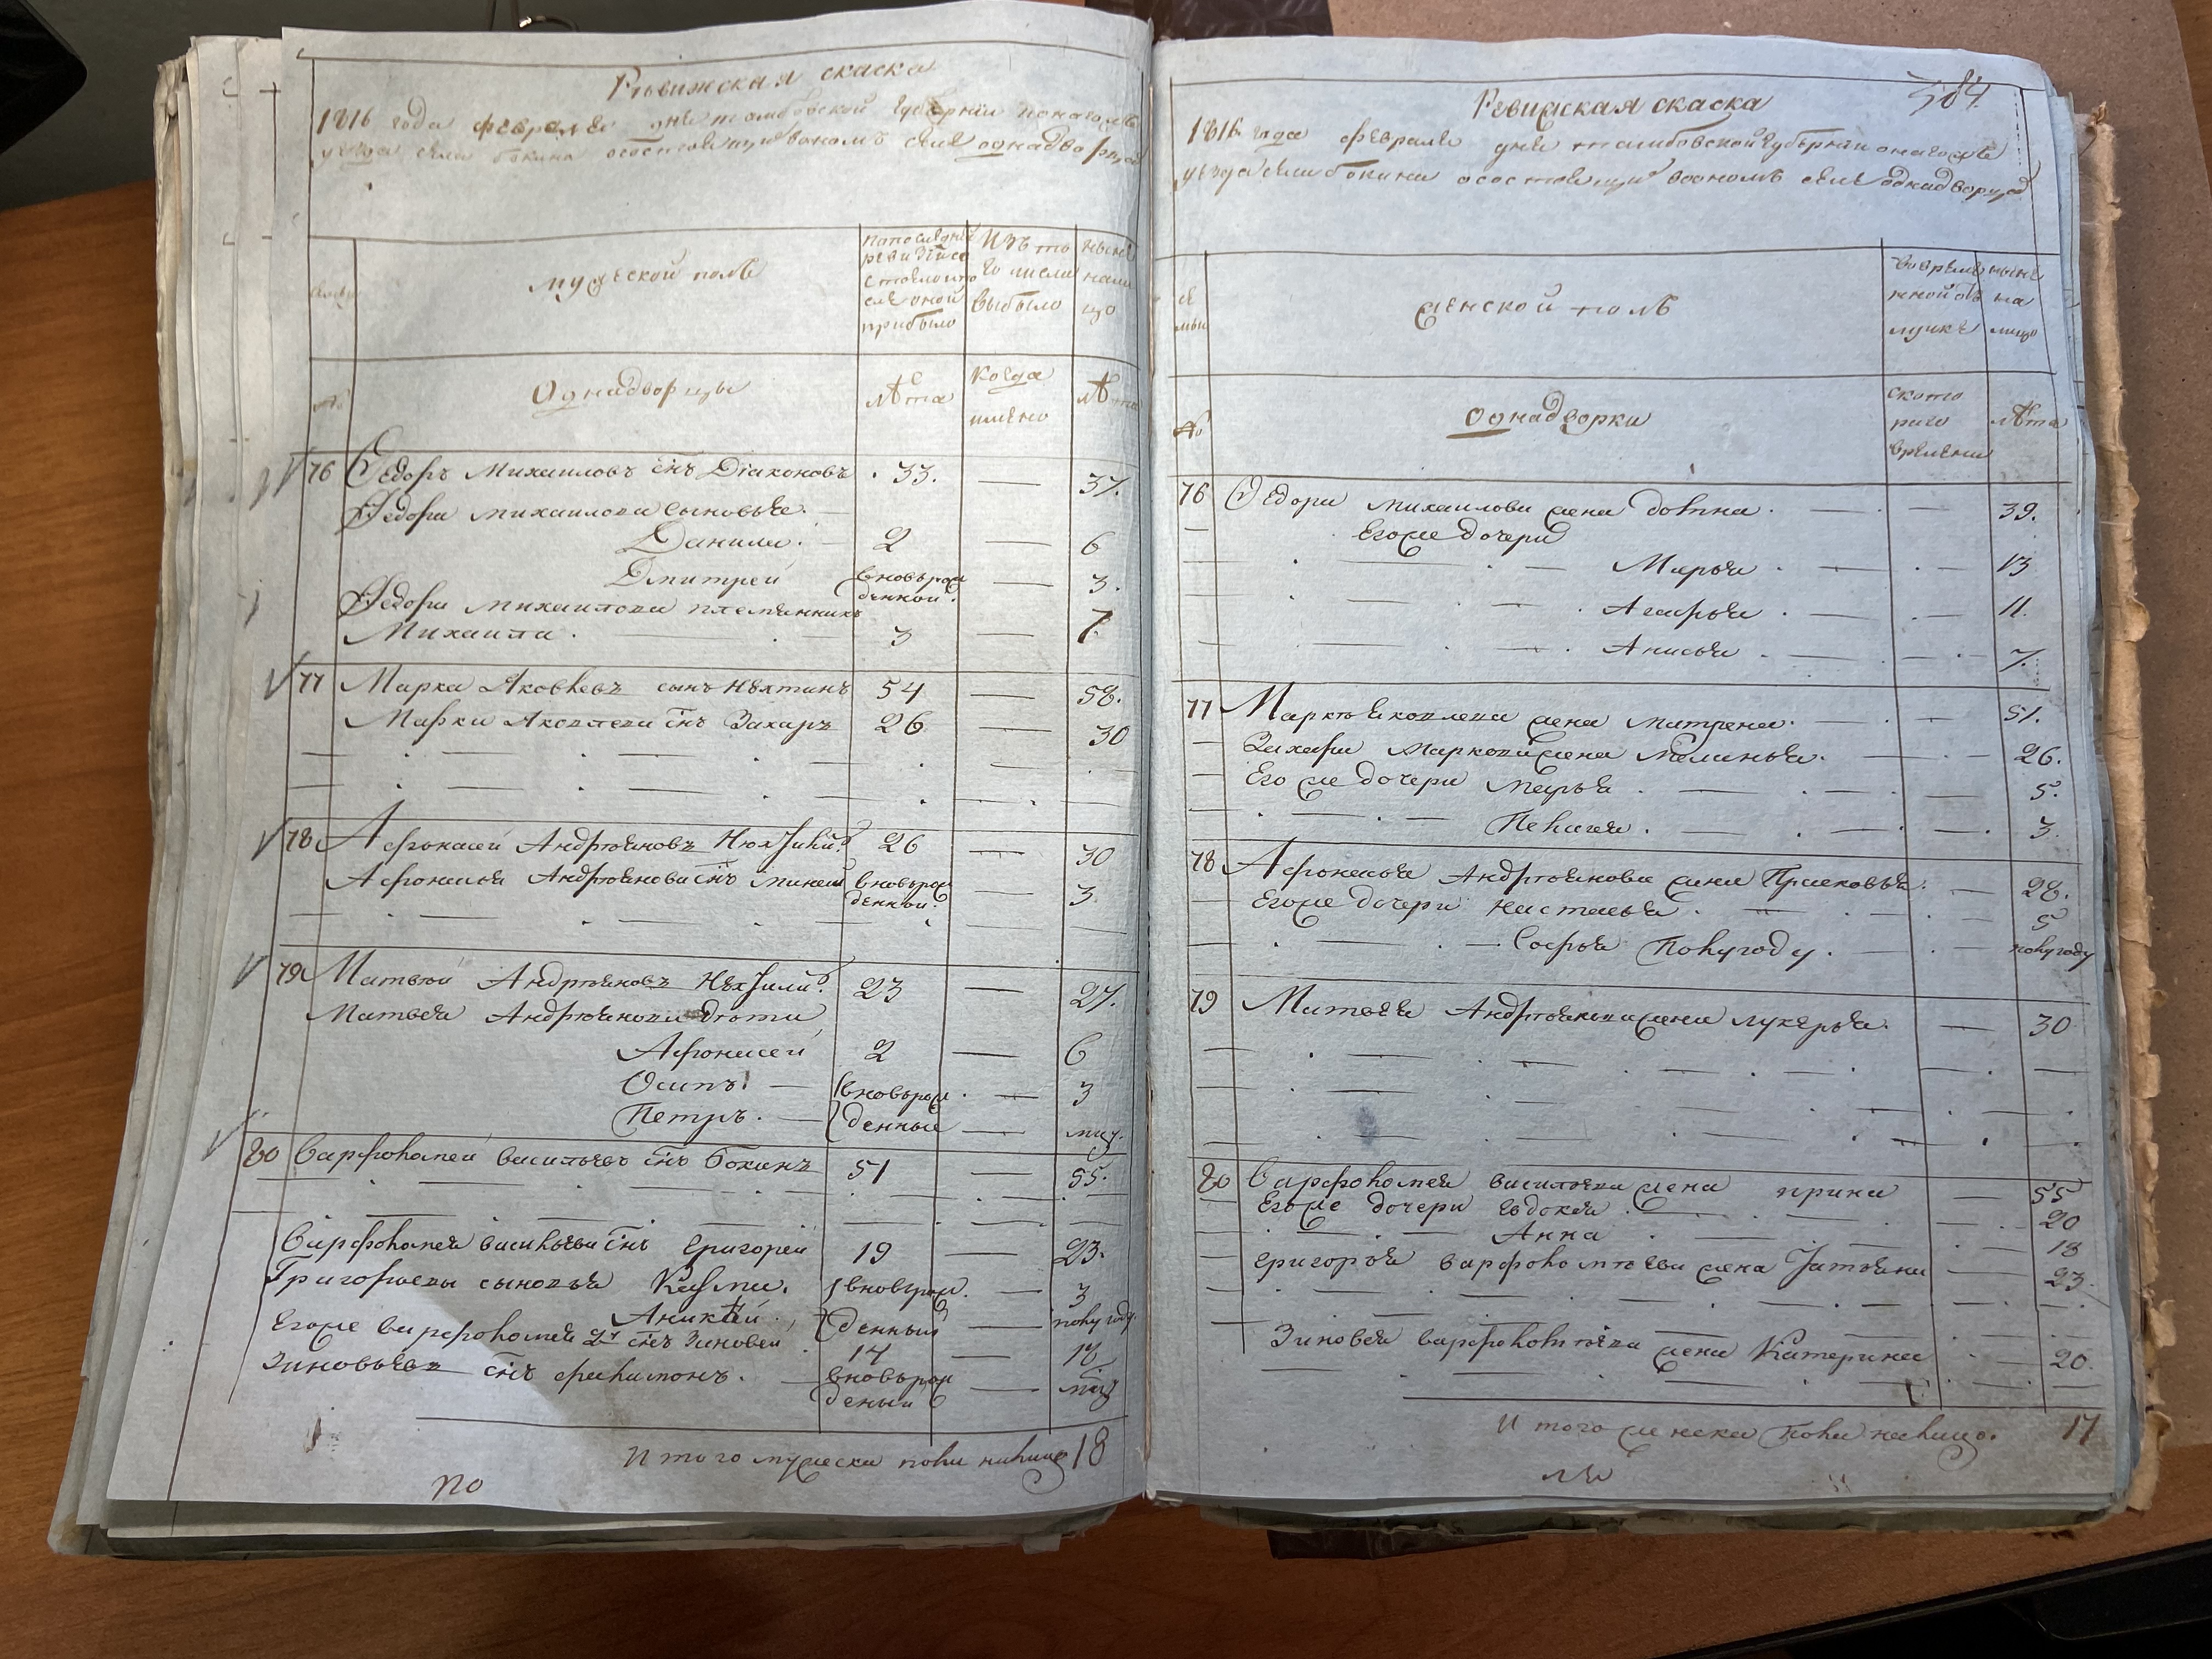 Ревижская скаска
1816 года февраля дня тамбовской губернии
уезда села бокина о состоящих во ономъ селе однадворцовъ
мужеской полъ
по последней ревизіи состояло и после оной прибыло
Изъ то го числа выбыло
ныне на лицо
№
Однадворцы
лѣта
когда имено
лѣта
76 Федоръ Михаиловъ снъ Діаконовъ 33. — 37.
Федора михаилова сыновья.
Данила. 2 — 6
Дмитрей вновьрож денной. — 3.
Федора михаилова племянникъ
Михаила. 3 — 7.
77 Марка Яковлевъ сынъ 54 — 58.
Марки Яковлева снъ Захаръ 26 — 30
78 Афонасей Андрѣяновъ 26 — 30
Афонасья Андрѣянова снъ минай вновьрож денной. — 3
79 Матвѣй Андрѣяновъ 23 — 27.
Матвея Андрѣянова дѣти
Афонасей 2 — 6
Осипъ. — вновьрож — 3
Петръ. — денные —
80 Варфоломей васильевъ снъ Бокинъ 51 — 55.
Варфоломея васильева снъ григорей 19 — 23.
Григорьевы сыновья Казма. вновьрож. — 3
Аникѣй. денный — полугоду.
Егоже варфоломея 2й снъ Зиновей 14 — 18
Зиновьевъ снъ филимонъ. — вновьрож деный —
И того мужеска пола налицо 18
по
384.
Ревижская скаска
1816 года февраля дня тамбовской губерніи
уезда села бокина о состоящих во ономъ селе однадворцовъ
се мьи
женской полъ
во време нной от лучке
ныне на лицо
№
однадворки
с кото раго времени
лѣта
76 Федора михаилова жена 39.
Егоже дочери
Марья 13
Агафья 11.
Анисья 7.
77 Марка яковлева жена матрена. 51.
Захара Маркова жена Меланья. 26.
Его же дочери марья 5.
Пелагея. 3.
78 Афонасья Андрѣянова жена Прасковья. 28.
Егоже дочери настасья. 5
Софья полугоду. полугоду
79 Матвея Андрѣянова жена лукерья. 30
80 Варфоломея васильева жена ирина 55
Егоже дочери евдокея 20
Анна 18
григорья варфоломѣева жена Татьяна 23
Зиновея варфоломѣева жена Катерина 20.
И того женска пола налицо. 17